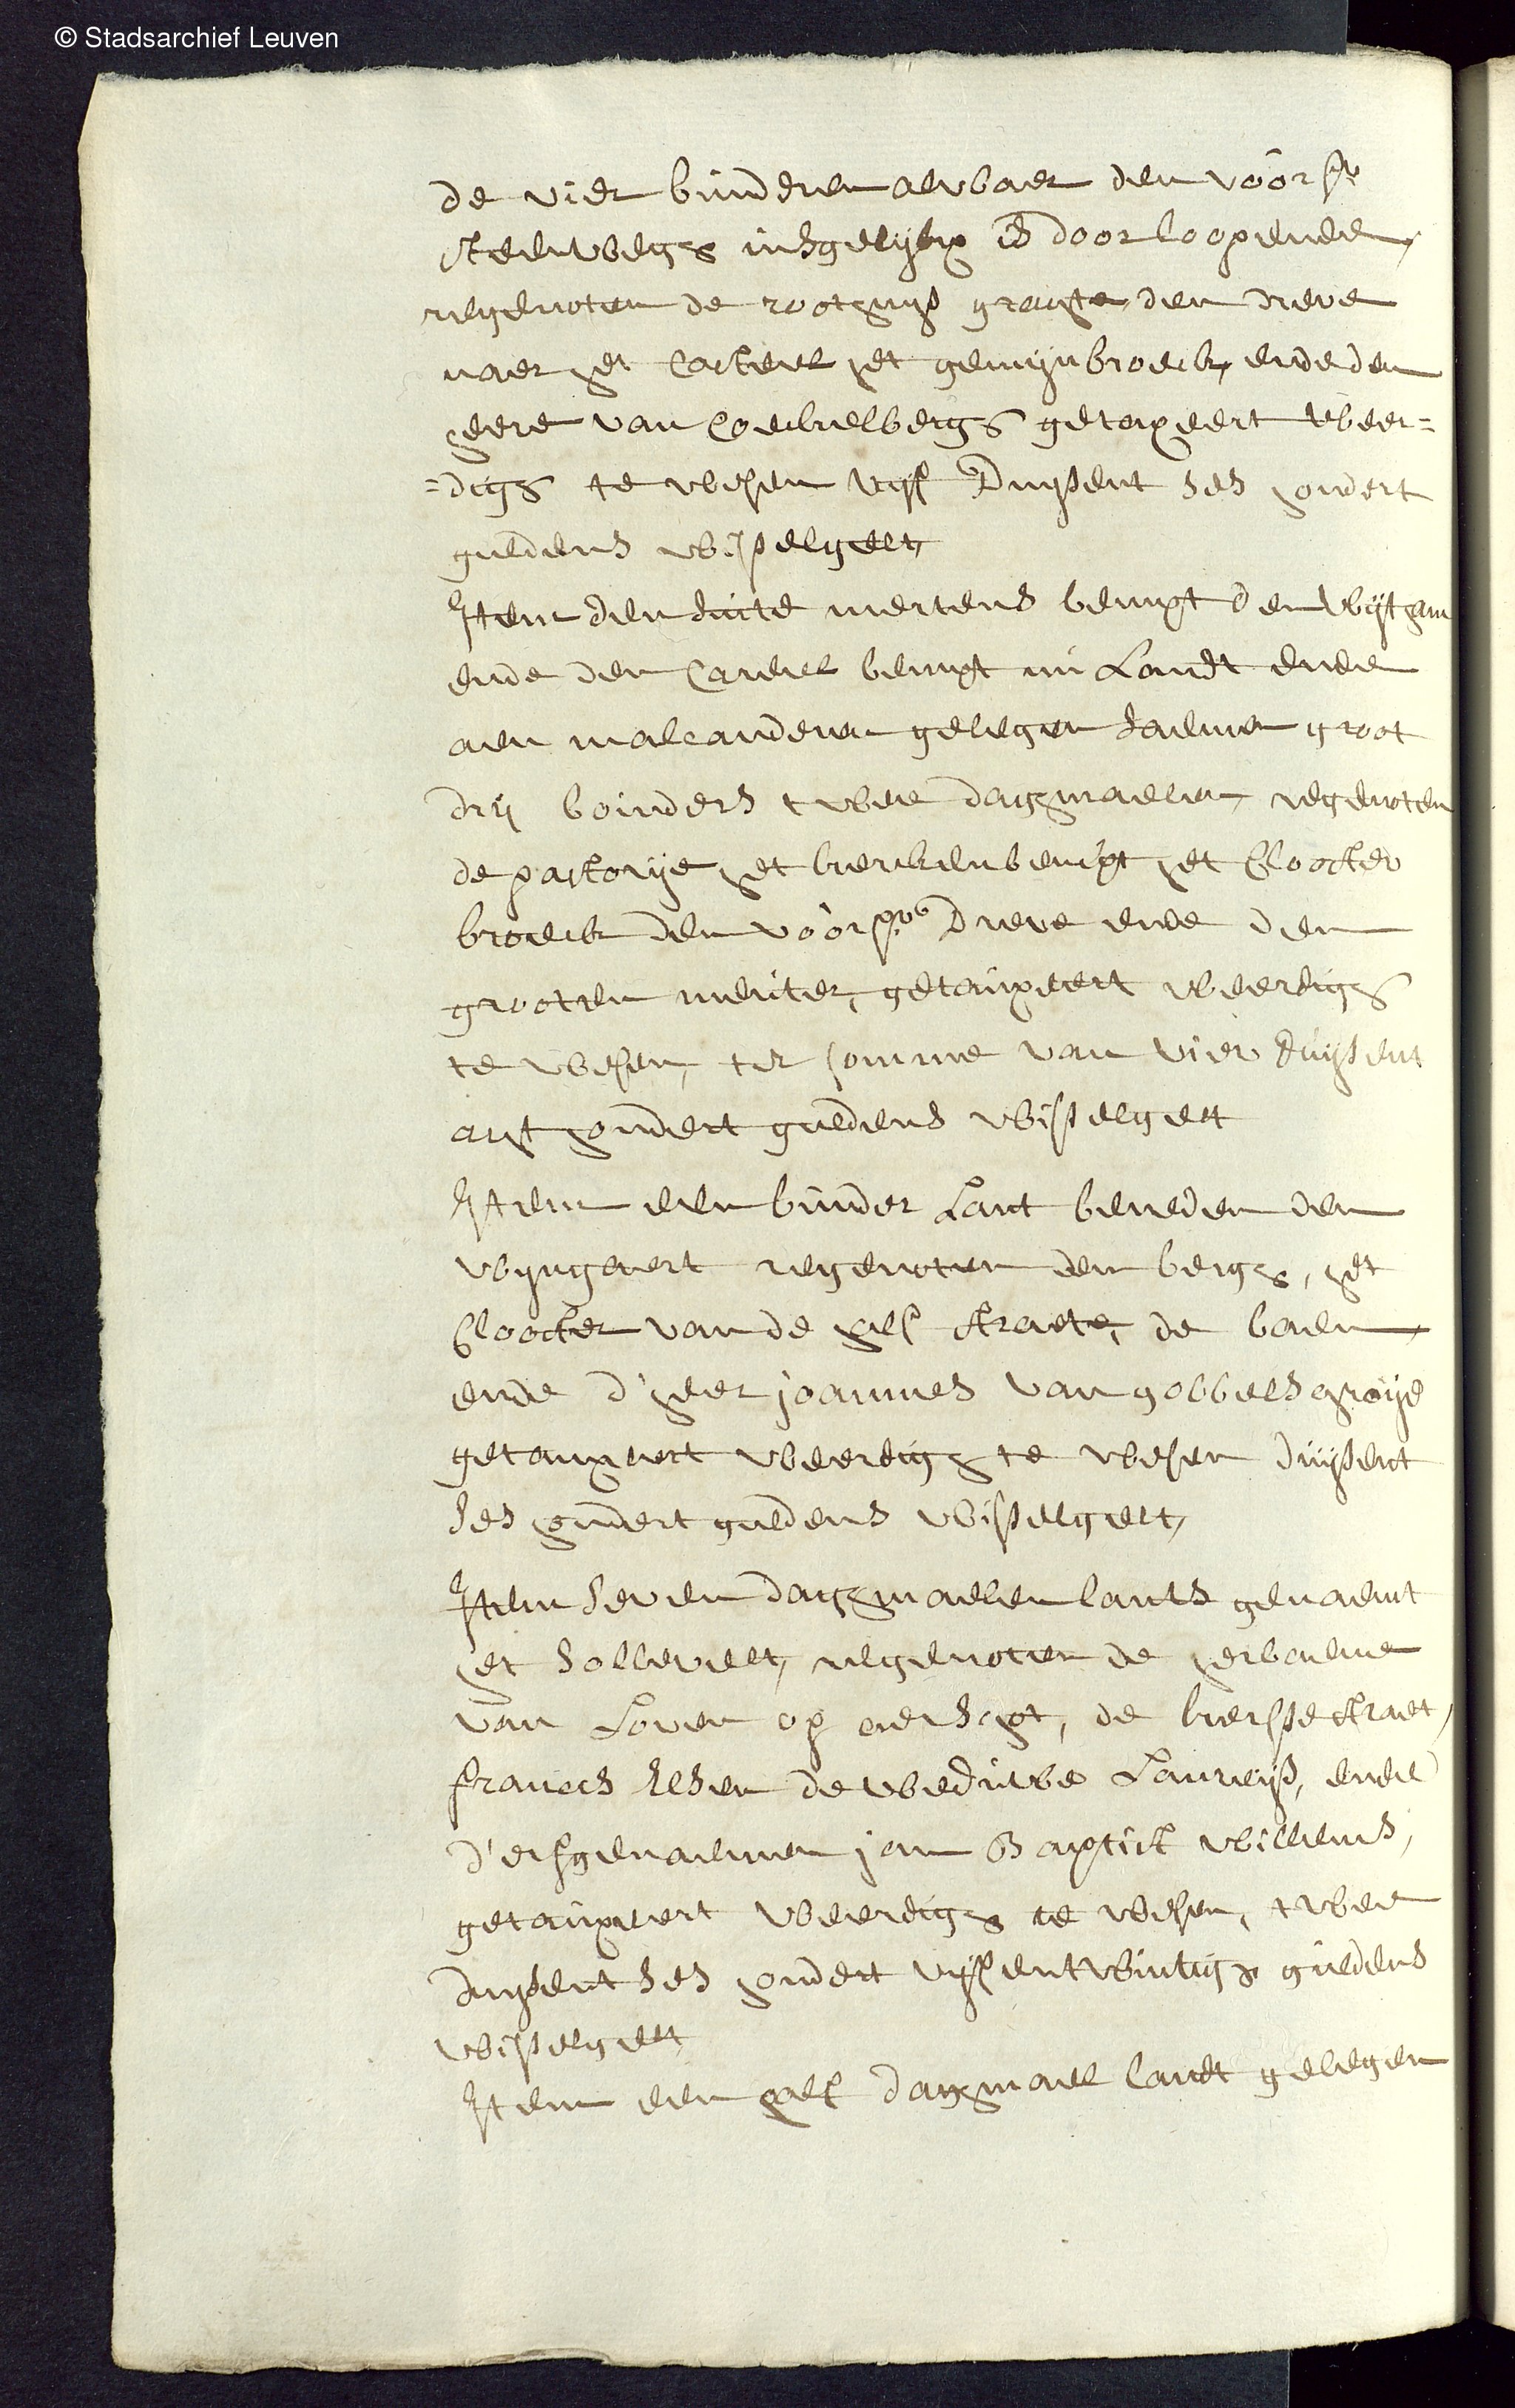 © Stadsarchief Leuven
de vier bunderen alwaer den voors:
steenwegh insgelijkx is doorloopende,
regenoten de roothuys grachte, den dreve
naer het Casteel het gemeijnbroeck, ende den
heere van Coeckelbergh getaxeert weer=
=digh te wesen vijf Duysent ses hondert
guldens wisselgelt,
Item den suite mertens bempt den
ende den bempt nu Landt ende
aen malcanderen gelegen saemen groot
drij bonders twee daghmaelen, regenoten
de pastorije het kerckenbempt het Clooster
broeck den voors: Dreve ende den
grooten meuter, getauxeert weerdigh
te wesen, ter somme van vier duysent
acht hondert guldens wisselgelt
Item een bunder Lant beneden den
wyngaert regenoten den bergh, het
Clooster vande half straete, de baen,
ende d'heer joannes van gobbelschroije
getauxeert weerdigh te wesen duijsent
ses hondert guldens wisselgelt,
Item seven daghmaelen lants genaemt
het sollevelt, regenoten de herbaene
van Loven op aerschot, de straet,
francis de weduwe Laureijs, ende
d'erfgenaemen jan Baptist willems,
getauxeert weerdigh te wesen, twee
duysent ses hondert vyffentwintigh guldens
wisselgelt
Item een half daghmael landt gelegen